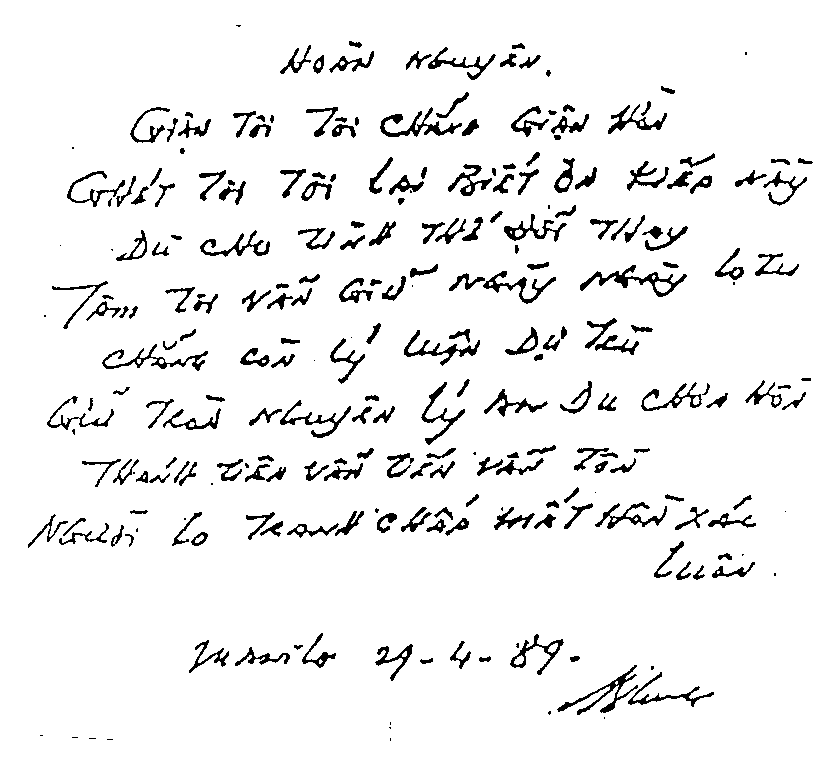 Hoàn Nguyên.
Giận Tôi Tôi chẳng Giận Hờn
Ghét Tôi Tôi Lại Biết Ơn Kiếp Nầy
Dù cho tình thế đổi thay
Tâm Tôi vẫn Giữ Ngày Ngày Lo Tu
chẳng còn Lý Luận Dự Trù
Giữ Tròn Nguyên Lý Âm Du chơn hồn
Thanh tiên vẫn tiến vẫn Tồn
Người Lo Tranh chấp mất Hồn xác
Luôn.
Manila 29-4-89-